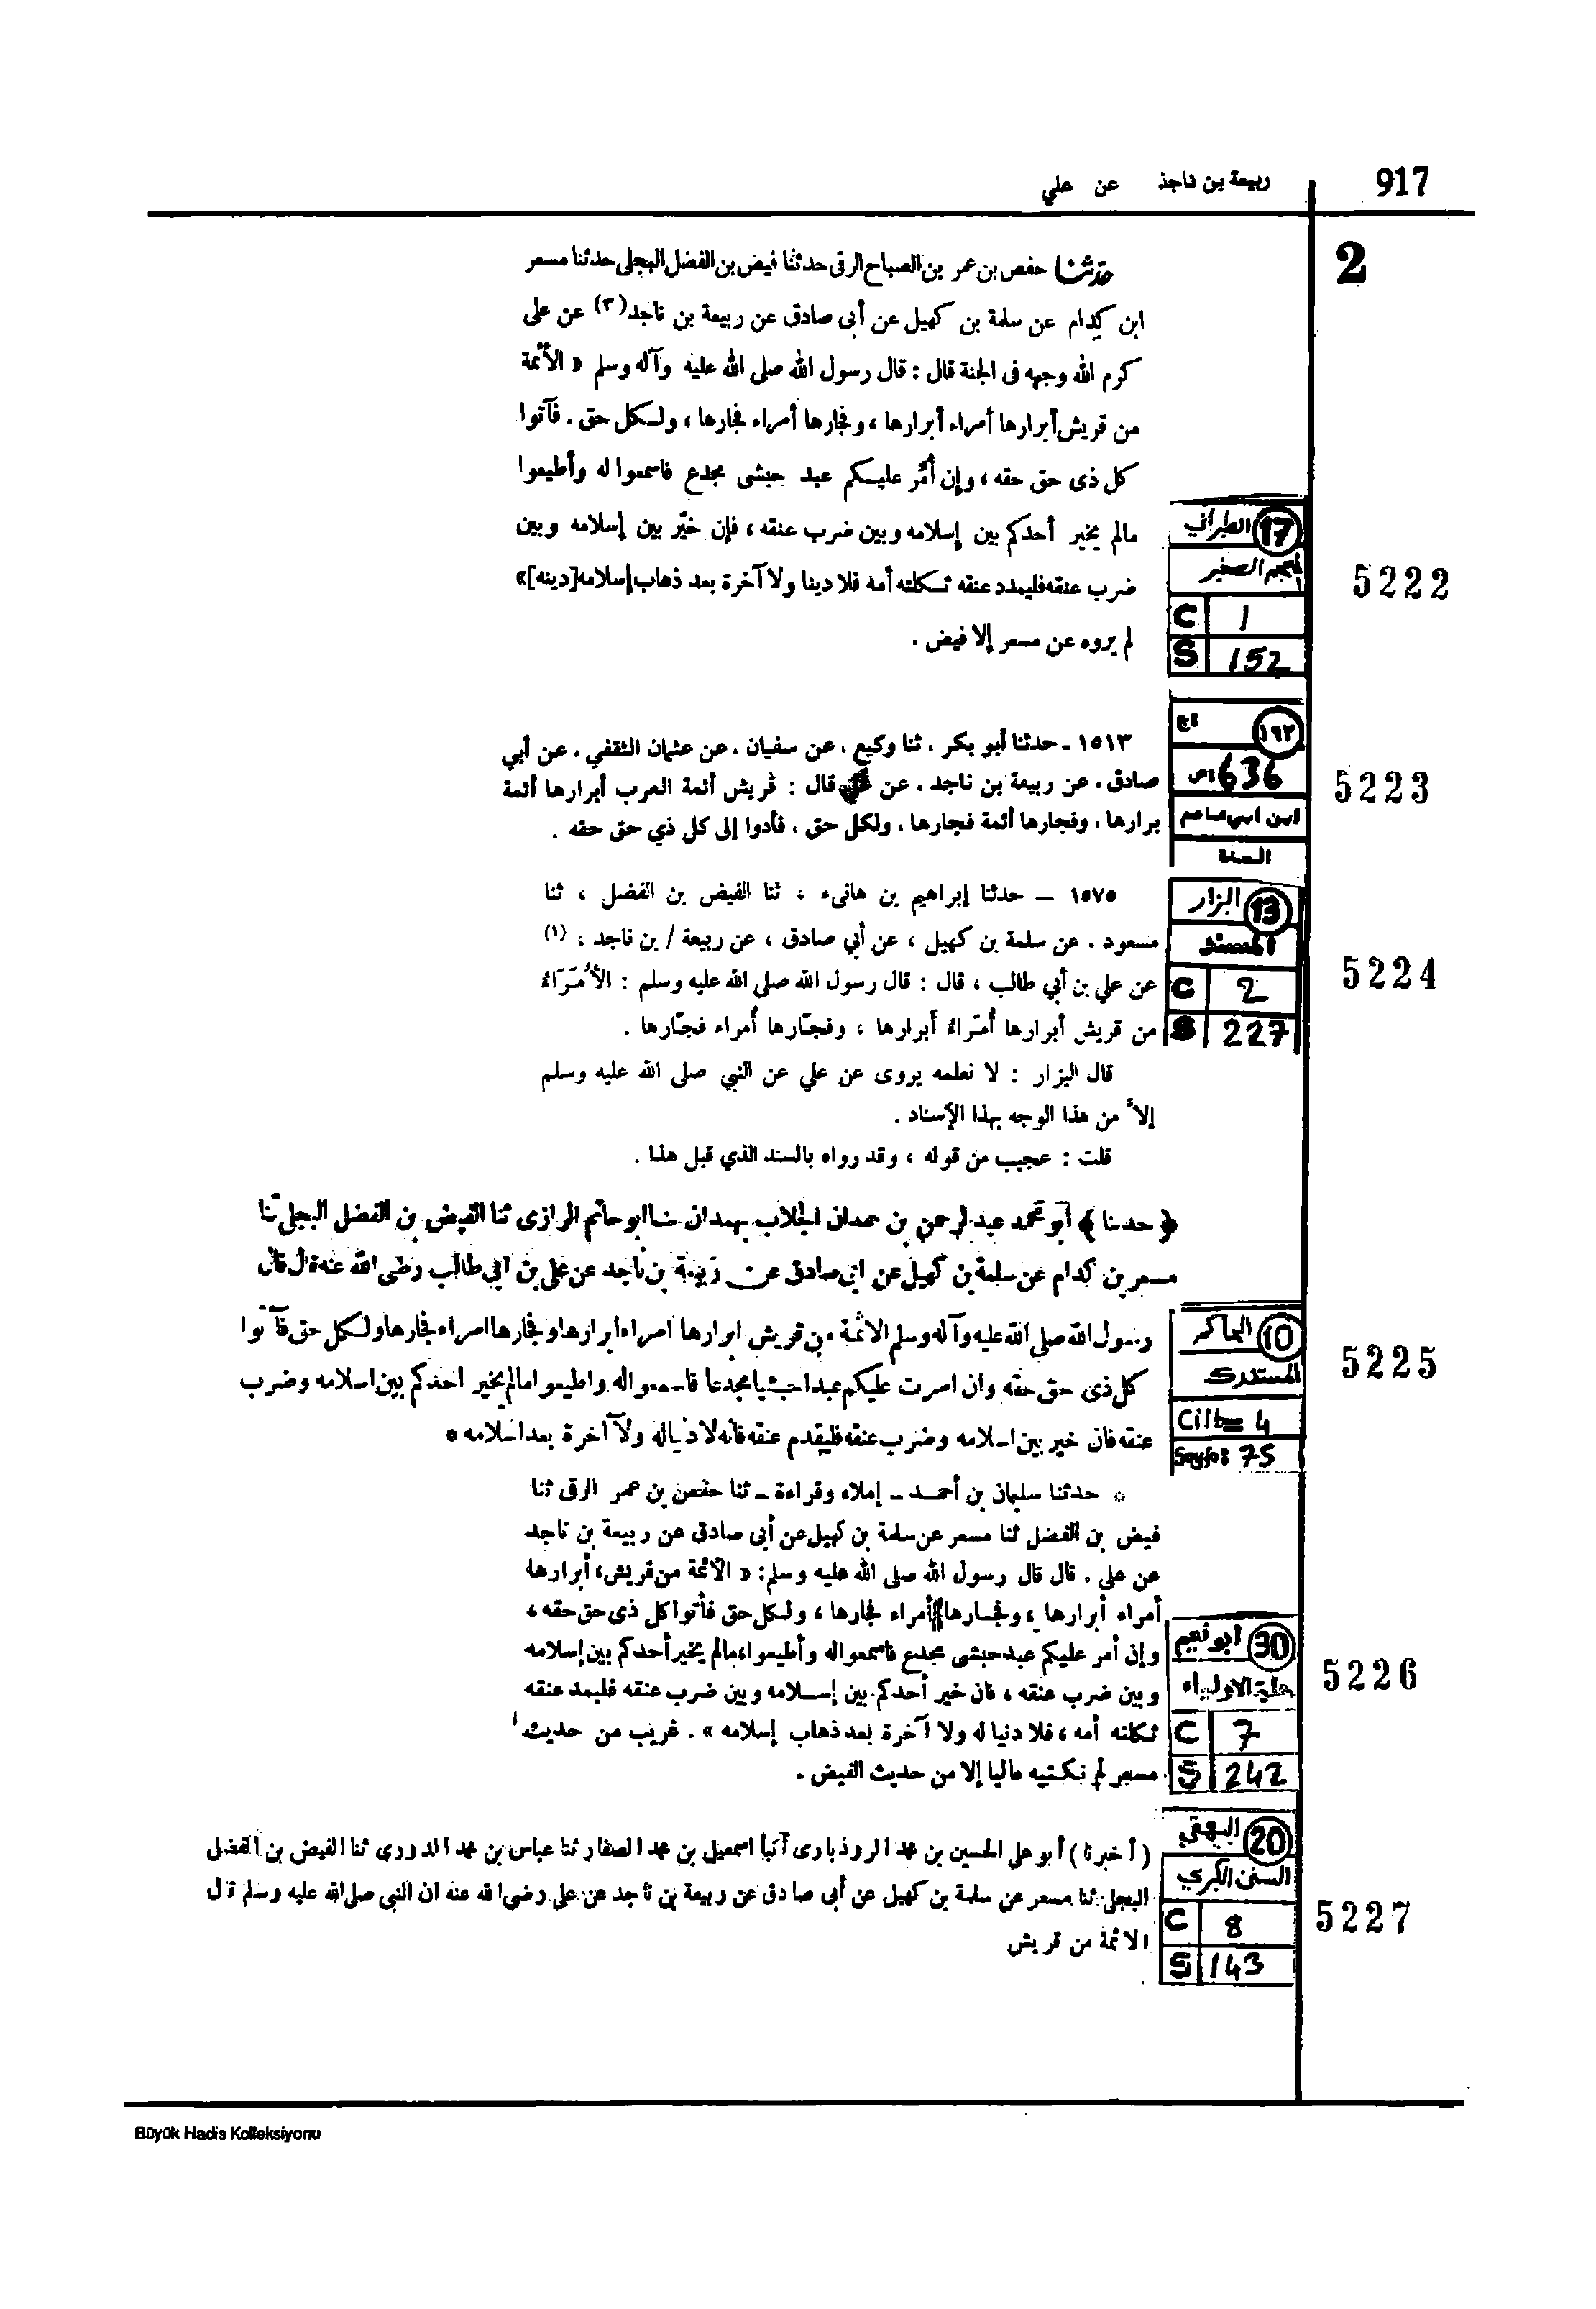 917
ربيعة بن ناجذ عن علي
2
حدثنا حفص بن عمر بن الصباح الرقى حدثنا فيض بن الفضل البجلى حدثنا مسعر
ابن كِدام عن سلمة بن كهيل عن أبى صادق عن ربيعة بن ناجد(٣) عن على
كرم الله وجهه فى الجنة قال : قال رسول الله صلى الله عليه وآله وسلم « الأئمة
من قريش أبرارها أمراء أبرارها ، وفجارها أمراء فجارها ، ولكل حق . فآتوا
كل ذى حق حقه ، وإن أُمِّر عليكم عبد حبشى مجدع فاسمعوا له وأطيعوا
مالم يخير أحدكم بين إسلامه وبين ضرب عنقه ، فإن خيّر بين إسلامه وبين
ضرب عنقه فليمدد عنقه ثكلته أمه فلا دينا ولا آخرة بعد ذهاب إسلامه[دينه]»
لم يروه عن مسعر إلا فيض .
17 الطبراني
المعجم الصغير
C 1
S 152
5222
١٥١٣ ـ حدثنا أبو بكر ، ثنا وكيع ، عن سفيان ، عن عثمان الثقفي ، عن أبي
صادق ، عن ربيعة بن ناجد ، عن قال : قريش أئمة العرب أبرارها أئمة
برارها ، وفجارها أئمة فجارها ، ولكل حق ، فأدوا إلى كل ذي حق حقه .
١٩٣
ص: 636
ابن ابي عاصم
السنة
5223
١٥٧٥ – حدثنا إبراهيم بن هانىء ، ثنا الفيض بن الفضل ، ثنا
مسعود . عن سلمة بن كهيل ، عن أبي صادق ، عن ربيعة / بن ناجد ، (١)
عن علي بن أبي طالب ، قال : قال رسول الله صلى الله عليه وسلم : الأُمَرَاءُ
من قريش أبرارها أُمَراءُ أبرارها ، وفجّارها أُمراء فجّارها .
قال البزار : لا نعلمه يروى عن علي عن النبي صلى الله عليه وسلم
إلاّ من هذا الوجه بهذا الإسناد .
قلت : عجيب من قوله ، وقد رواه بالسند الذي قبل هذا .
13 البزار
المسند
C 2
S 227
5224
﴿ حدثنا ﴾ أبو محمد عبد الرحمن بن حمدان الجلاب بهمدان ثنا ابو حاتم الرازى ثنا الفيض بن الفضل البجلى ثنا
مسعر بن كدام عن سلمة بن كهيل عن ابى صادق عن ربيعة بن ناجد عن على بن ابى طالب رضى الله عنه قال قال
رسول الله صلى الله عليه وآله وسلم الائمة من قريش ابرارها امراء ابرارها وفجارها امراء فجارها ولكل حق فآتوا
كل ذى حق حقه وان امرت عليكم عبدا حبشيا مجدعا فاسمعوا له واطيعوا مالم يخير احدكم بين اسلامه وضرب
عنقه فان خير بين اسلامه وضرب عنقه فليقدم عنقه فانه لا دنيا له ولا آخرة بعد اسلامه *
10 الحاكم
المستدرك
Cilt= 4
Sayfa: 75
5225
* حدثنا سليمان بن أحمد ـ إملاء وقراءة ـ ثنا حفص بن عمر الرقى ثنا
فيض بن الفضل ثنا مسعر عن سلمة بن كهيل عن أبى صادق عن ربيعة بن ناجد
عن على . قال قال رسول الله صلى الله عليه وسلم: « الأئمة من قريش، أبرارها
أمراء أبرارها ، وفجارها أمراء فجارها ، ولكل حق فأتوا كل ذى حق حقه ،
وإن أمر عليكم عبد حبشى مجدع فاسمعوا له وأطيعوا، مالم يخير أحدكم بين إسلامه
وبين ضرب عنقه ، فان خير أحدكم بين إسلامه وبين ضرب عنقه فليمد عنقه
ثكلته أمه ، فلا دنيا له ولا آخرة بعد ذهاب إسلامه » . غريب من حديث
مسعر لم نكتبه عاليا إلا من حديث الفيض .
30 أبو نعيم
حلية الاولياء
C 7
S 242
5226
( أخبرنا ) أبو على الحسين بن محمد الروذبارى أنبأ اسمعيل بن محمد الصفار ثنا عباس بن محمد الدورى ثنا الفيض بن الفضل
البجلى ثنا مسعر عن سلمة بن كهيل عن أبى صادق عن ربيعة بن ناجد عن على رضى الله عنه ان النبى صلى الله عليه وسلم قال
الائمة من قريش
20 البيهقي
السنن الكبري
C 8
S 143
5227
Büyük Hadis Kolleksiyonu